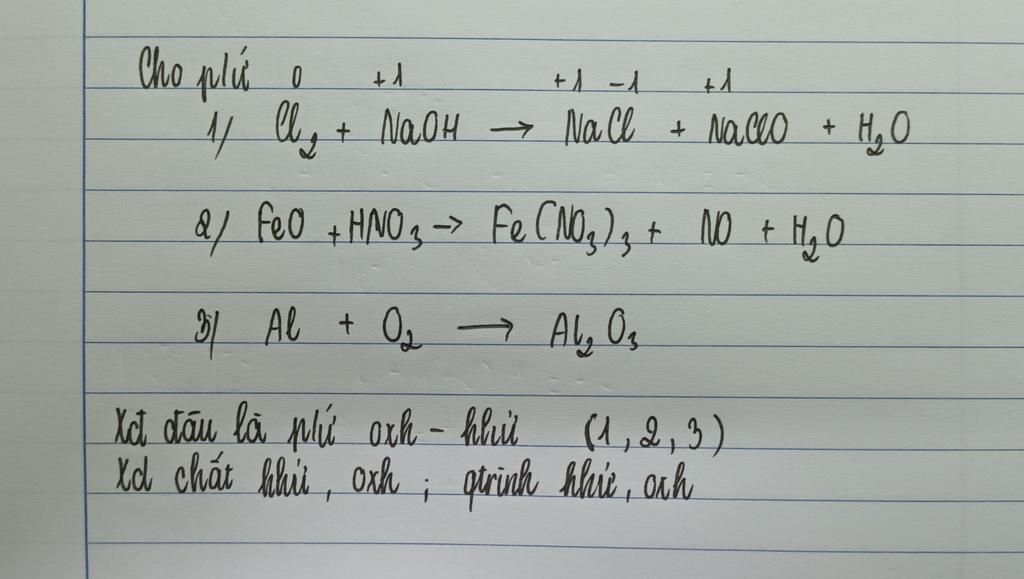 Cho pứ 0 +1 +1 -1 +1
1/ Cl2 + NaOH → NaCl + NaClO + H2O
2/ FeO + HNO3 → Fe(NO3)3 + NO + H2O
3/ Al + O2 → Al2O3
Xđ đâu là pứ oxh - khử (1, 2, 3)
Xd chất khử, oxh ; qtrinh khử, oxh